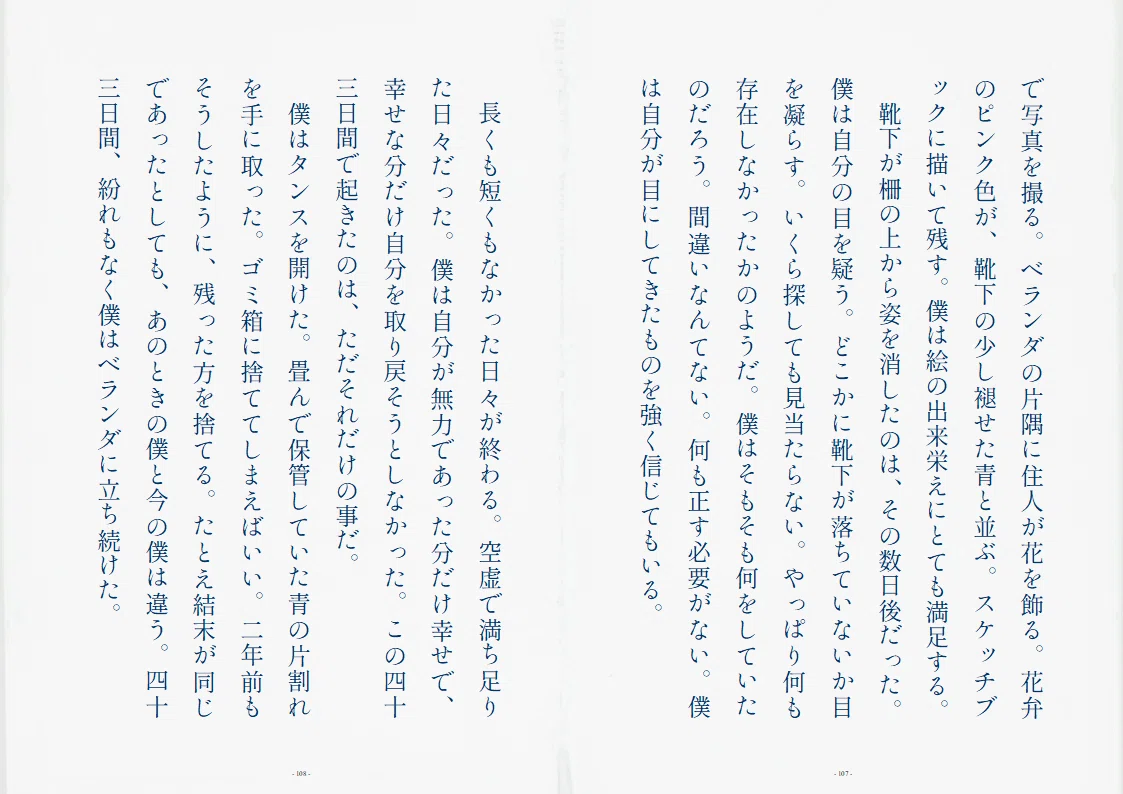 で写真を撮る。ベランダの片隅に住人が花を飾る。花弁
のピンク色が、靴下の少し褪せた青と並ぶ。スケッチブ
ックに描いて残す。僕は絵の出来栄えにとても満足する。
靴下が柵の上から姿を消したのは、その数日後だった。
僕は自分の目を疑う。どこかに靴下が落ちていないか目
を凝らす。いくら探しても見当たらない。やっぱり何も
存在しなかったかのようだ。僕はそもそも何をしていた
のだろう。間違いなんてない。何も正す必要がない。僕
は自分が目にしてきたものを強く信じてもいる。
- 107 -
長くも短くもなかった日々が終わる。空虚で満ち足り
た日々だった。僕は自分が無力であった分だけ幸せで、
幸せな分だけ自分を取り戻そうとしなかった。この四十
三日間で起きたのは、ただそれだけの事だ。
僕はタンスを開けた。畳んで保管していた青の片割れ
を手に取った。ゴミ箱に捨ててしまえばいい。二年前も
そうしたように、残った方を捨てる。たとえ結末が同じ
であったとしても、あのときの僕と今の僕は違う。四十
三日間、紛れもなく僕はベランダに立ち続けた。
- 108 -